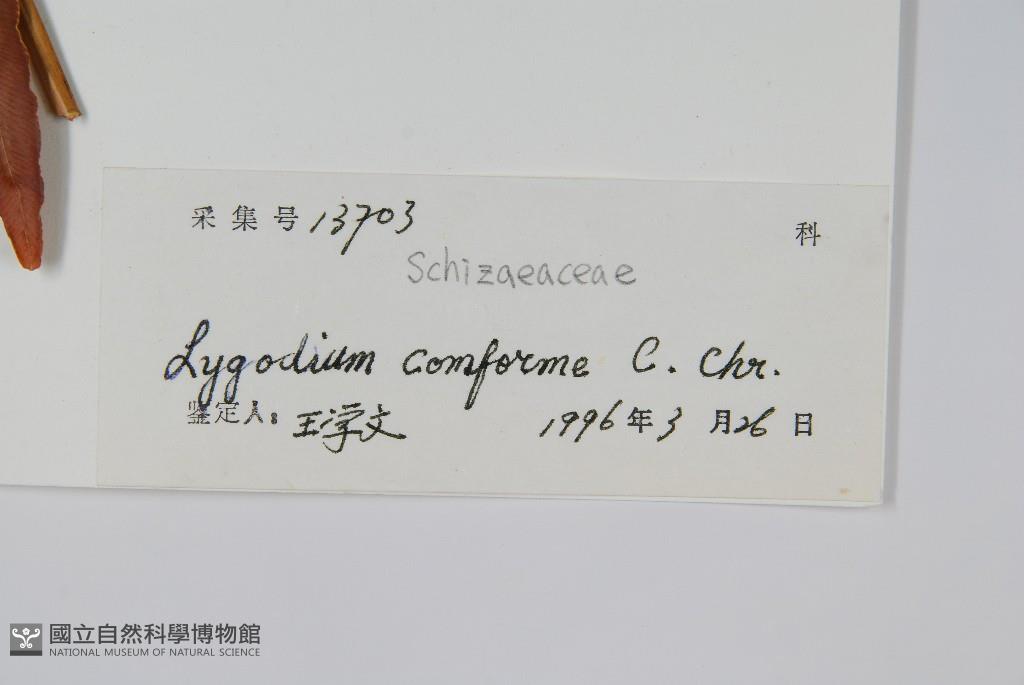 采集号 13703 科
Schizaeaceae
Lygodium comforme C. Chr.
鉴定人: 王学文 1996年3月26日
國立自然科學博物館
NATIONAL MUSEUM OF NATURAL SCIENCE